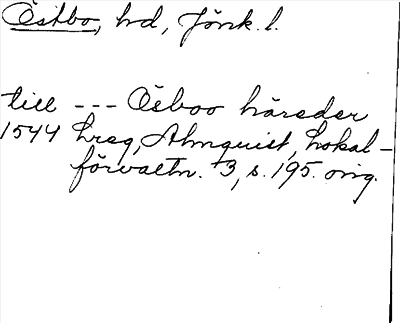 Östbo, hd, Jönk. l.
till --- Ösboo häreder
1544 hrsg, Almquist, Lokal-
förvaltn. 3, s. 195. orig.